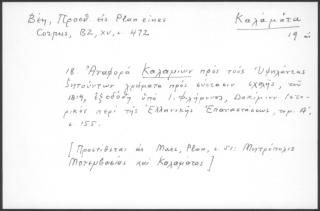 Βέη, Προσθ. εἰς Plan eines
Corpus, BZ, XV, σ. 472
Καλαμάτα
19 αἰ
18. Ἀναφορὰ Καλαμίων πρὸς τοὺς Ὑψηλάντας
ζητούντων χρήματα πρὸς σύστασιν σχολῆς, τοῦ
1819, ἐξεδόθη ὑπὸ Ι. Φιλήμονος, Δοκίμιον Ἱστο-
ρικὸν περὶ τῆς Ἑλληνικῆς Ἐπαναστάσεως, τομ. Α΄,
σ. 155.
[Προστίθεται εἰς Marc, Plan, σ. 51: Μητρόπολις
Μονεμβασίας καὶ Καλαμάτας]